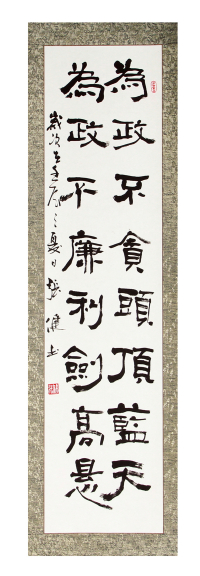 為政不貪頭頂藍天
為政不廉利劍高懸
歲次
之夏日張健書